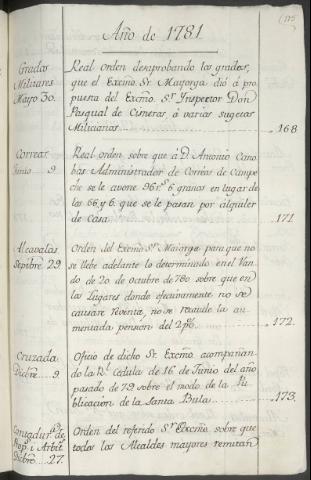 (175
Año de 1781
Grados Militares Mayo 30.
Real orden desaprobando los grados,
que el Excmo Sr Mayorga dió á pro
puesta del Excmo Sr Inspector Don
Pasqual de Cisneros á varios sugetos
Milicianos 168
Correos Junio 9
Real orden sobre que á D. Antonio Cano
bas Administrador de Correos de Campe
che se le avone 96 rs 6 granos en lugar de
los 66 y 6 que se le pasan por alquiler
de Casa 171
Alcavalas Septbre 29
Orden del Excmo Sr Mayorga para que no
se llebe adelante lo determinado en el Van
do de 20 de octubre de 780 sobre que en
los Lugares donde efectivamente no se
causare reventa, no se recaude la au
mentada pension del 2 p% 172
Cruzada Dicbre 9
Oficio de dicho Sr Excmo acompañan
do la Rl Cedula de 16 de Junio del año
pasado de 79 sobre el modo de la Pu
blicacion de la Santa Bula 173
Contadura de Prop.s i Arbit.s Dicbre 27.
Orden del referido Sr Excmo sobre que
todos los Alcaldes mayores remitan